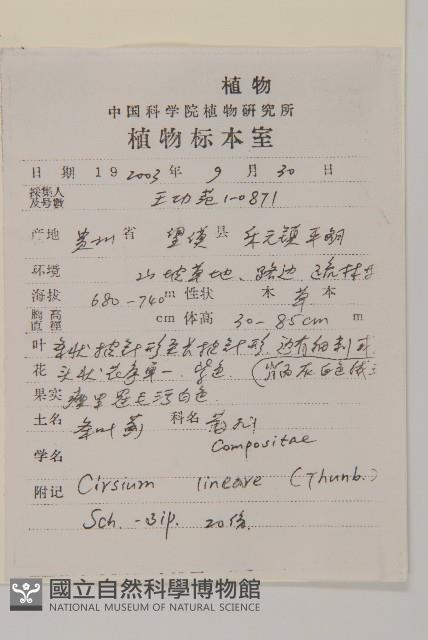 植物
中国科学院植物研究所
植物标本室
日 期 19 2003 年 9 月 30 日
採集人 及号數 王功芳 1-0871
产地 贵州 省 望谟 县 乐元镇平朗
环境 山坡草地、路边、疏林
海拔 680-740 m 性状 木 草 本
胸高直徑 cm 体高 30-85cm m
叶 条状披针形至长披针形, 边有细刺
花 头状花序单一. 紫色. (背面灰白色
果实 瘦果冠毛污白色
土名 条叶蓟 科名 菊科
学名 Compositae
附记 Cirsium lineare (Thunb.)
Sch. -Bip. 20份
國立自然科學博物館
NATIONAL MUSEUM OF NATURAL SCIENCE